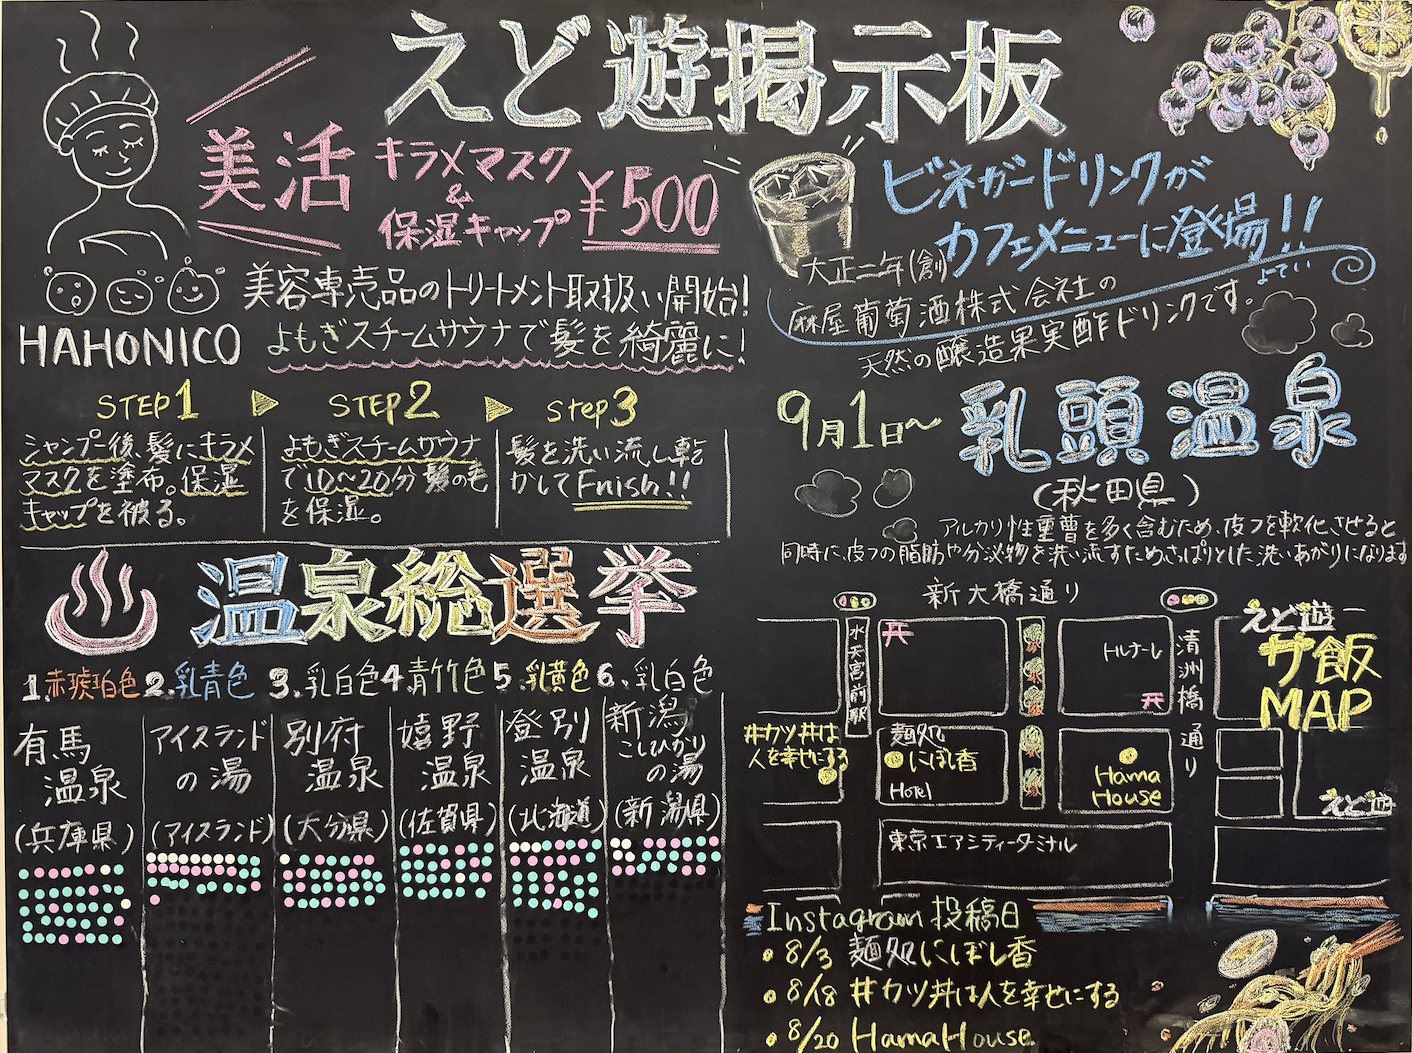 えど遊掲示板
美活
キラメマスク
&
保湿キャップ
¥500
美容専売品のトリートメント取扱い開始!
HAHONICO
よもぎスチームサウナで髪を綺麗に!
STEP1
シャンプー後、髪にキラメ
マスクを塗布。保湿
キャップを被る。
STEP2
よもぎスチームサウナ
で10~20分髪の毛
を保湿。
step3
髪を洗い流し乾
かしてFnish!!
ビネガードリンクが
カフェメニューに登場!!
大正二年(創)
麻屋葡萄酒株式会社の
天然の醸造果実酢ドリンクです。
9月1日~
乳頭温泉
(秋田県)
アルカリ性重曹を多く含むため、皮フを軟化させると
同時に、皮フの脂肪や分泌物を洗い流すためさっぱりとした洗いあがりになります
温泉総選挙
1.赤琥珀色
有馬
温泉
(兵庫県)
2.乳青色
アイスランド
の湯
(アイスランド)
3.乳白色
別府
温泉
(大分県)
4.青竹色
嬉野
温泉
(佐賀県)
5.乳黄色
登別
温泉
(北海道)
6.乳白色
新潟
こしひかり
の湯
(新潟県)
新大橋通り
えど遊
サ飯
MAP
水天宮前駅
トルナーレ
清洲橋通り
#カツ丼は
人を幸せにする
麺処
にぼし香
Hotel
Hama
House
えど遊
東京エアシティーターミナル
Instagram投稿日
・8/3 麺処にぼし香
・8/18 #カツ丼は人を幸せにする
・8/20 HamaHouse